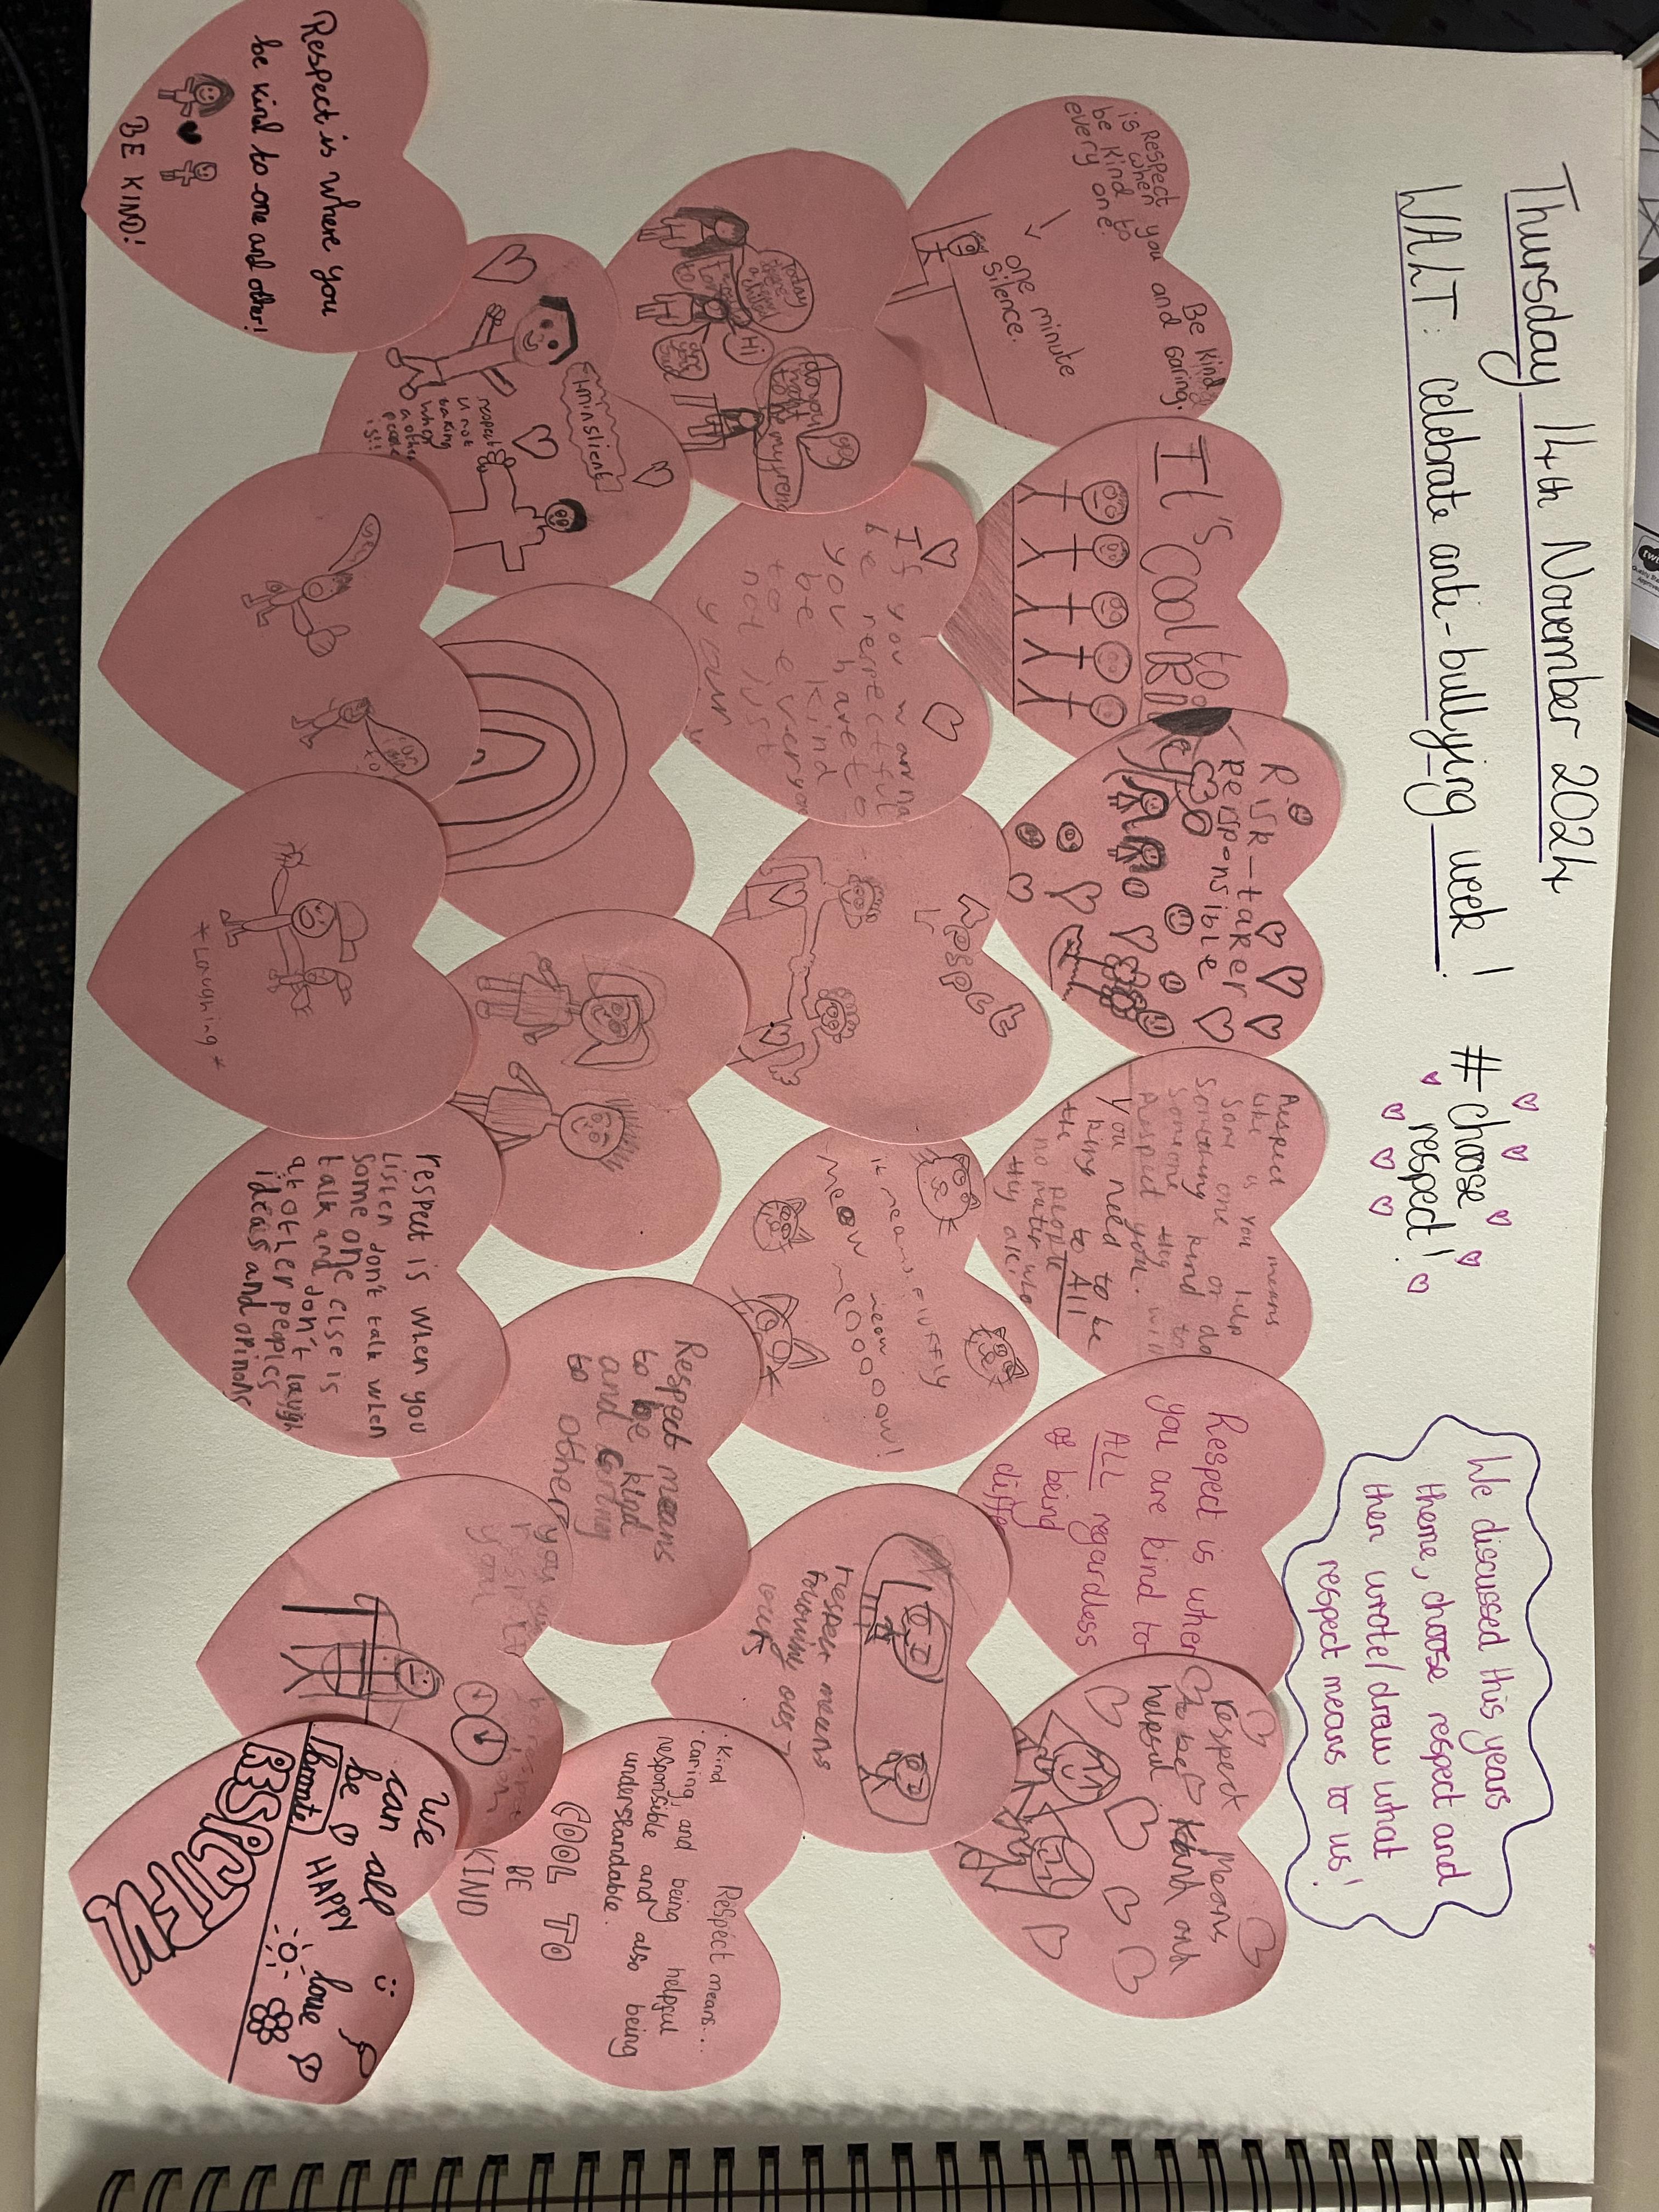 Thursday 14th November 2024
WALT: celebrate anti-bullying week!
#choose
respect!
We discussed this years
theme, choose respect and
then wrote/draw what
respect means to us!
Be kind
and caring.
Respect
is when you
be kind to
every one.
one minute
silence.
It's cool to
be
Risk-taker
Responsible
Respect means
like is you help
some one or do
something kind to
someone they will
Respect you.
You need to be
king to All
the people
no mater who
they are.
Respect is when
you are kind to
ALL regardless
of being
Respect means
to be
helpful and
Today
Hi
do you
yes
If you wanna
be respectful
you have to
be kind
to everyone
not just
your
Respect
it means fluffy
meow
Meow meoooow!
respect means
following ones
1 min slient
respect
u not
talking
when
a other
people
is!!
Respect means
to be kind
and caring
to other
Respect means...
Kind
caring, and being helpful
responsible and also being
understandable.
COOL TO
BE
KIND
Respect is where you
be kind to one and other!
BE KIND!
*Laughing*
respect is when you
listen don't talk when
some one else is
talk and don't laugh
at other peoples
ideas and opinions
you
respect
you
We
can all
be HAPPY love
RESPCTFUL